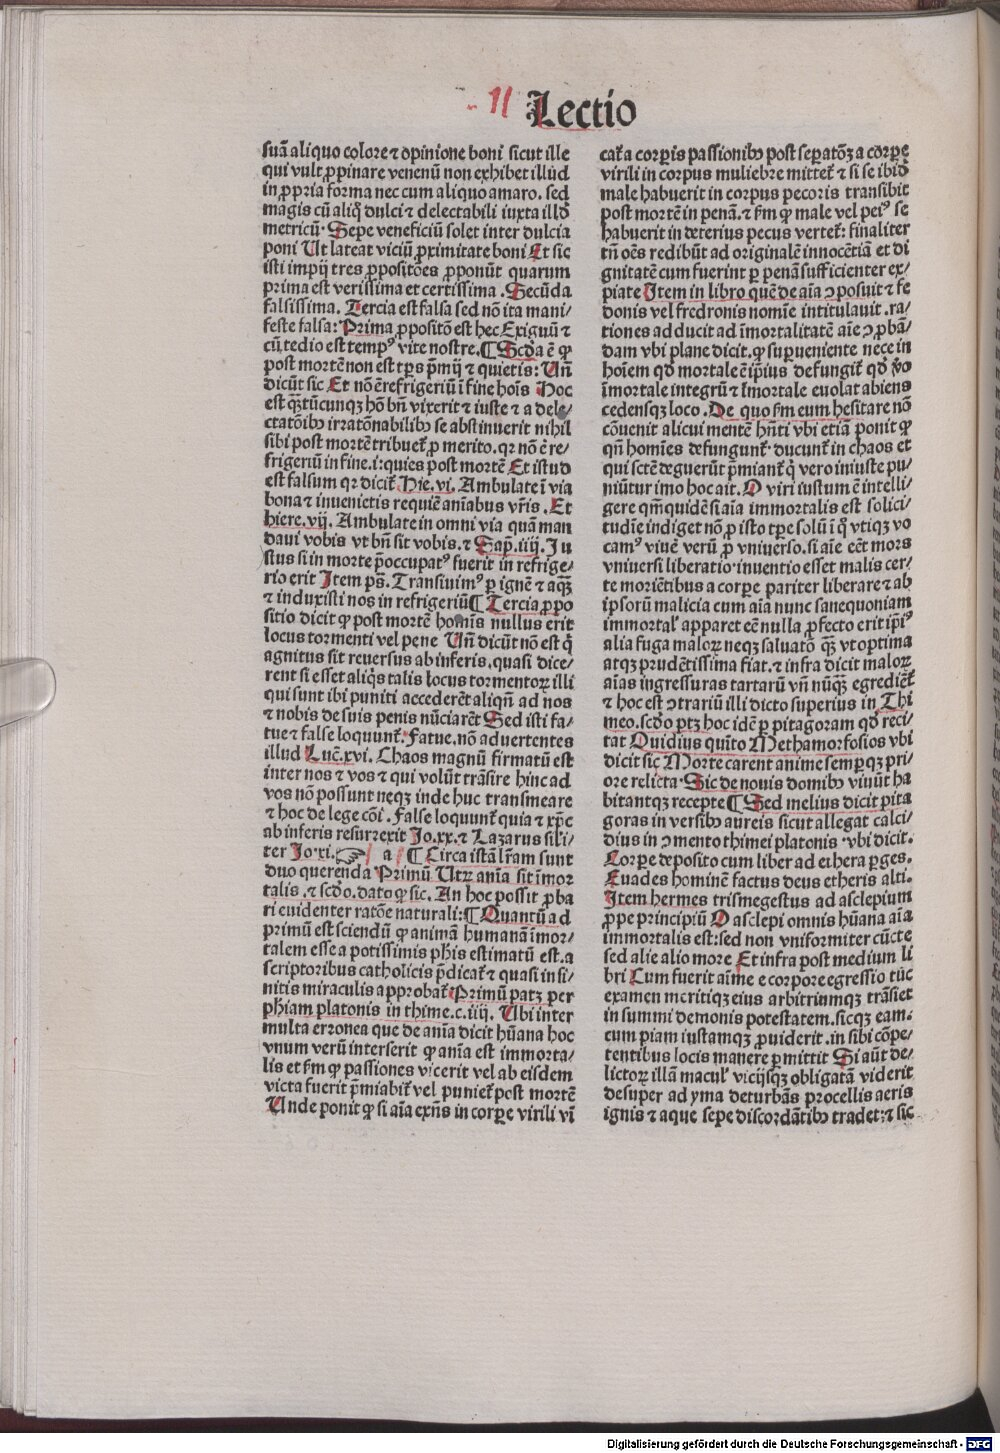 11 Lectio
suā aliquo colore ⁊ opinione boni sicut ille
qui vult ꝓpinare venenū non exhibet illud
in ꝓpria forma nec cum aliquo amaro. sed
magis cū aliq̄ dulci ⁊ delectabili iuxta illd̄
metricū. Sepe veneficiū solet inter dulcia
poni Ut lateat viciū ꝓximitate boni Et sic
isti impij tres ꝓpositōes ꝓponūt quarum
prima est verissima et certissima. Secūda
falsissima. Tercia est falsa sed nō ita mani/
feste falsa: Prima ꝓpositō est hec Exiguū ⁊
cū tedio est tempꝰ vite nostre. ¶ Scd̄a ē ꝙ
post mortē non est tp̄s p̄mij ⁊ quietis: Un̄
dicūt sic Et nō ē refrigeriū ī fine hoīs Hoc
est q̄ꝫtūcunqꝫ hō bn̄ vixerit ⁊ iuste ⁊ a dele/
ctatōibꝫ irratōnabilibꝫ se abstinuerit nihil
sibi post mortē tribuet̄ ꝓ merito. qꝛ nō ē re/
frigeriū in fine. i: quies post mortē Et istud
est falsum qꝛ dicit̄ Hie. vi. Ambulate ī via
bona ⁊ inuenietis requiē aīabus vr̄is. Et
hiere. vij. Ambulate in omni via quā man
daui vobis vt bn̄ sit vobis. ⁊ Sap̄. iiij. Iu
stus si in morte p̄occupatꝰ fuerit in refrige/
rio erit Item ps̄. Transiuimꝰ ꝑ ignē ⁊ aq̄ꝫ
⁊ induxisti nos in refrigeriū ¶ Tercia ꝓpo
sitio dicit ꝙ post mortē homīs nullus erit
locus tormenti vel pene Un̄ dicūt nō est q̄
agnitus sit reuersus ab inferis. quasi dice/
rent si esset aliq̄s talis locus tormentoꝝ illi
qui sunt ibi puniti accederēt aliqn̄ ad nos
⁊ nobis de suis penis nūciarēt Sed isti fa/
tue ⁊ false loquunt̄. Fatue. nō aduertentes
illud Luc̄. xvi. Chaos magnū firmatū est
inter nos ⁊ vos ⁊ qui volūt trāsire hinc ad
vos nō possunt neqꝫ inde huc transmeare
⁊ hoc de lege cōi. False loquunt̄ quia ⁊ xp̄c
ab inferis resurrexit Jo. xx. ⁊ Lazarus sīli/
ter Jo. xi. ☞ a ¶ Circa istā lr̄am sunt
duo querenda Primū Utꝝ anīa sit īmor
talis. ⁊ scd̄o. dato ꝙ sic. An hoc possit ꝓba
ri euidenter ratōe naturali: ¶ Quantū ad
primū est sciendū ꝙ animā humanā īmor/
talem esse a potissimis ph̄is estimatū est. a
scriptoribus catholicis p̄dicat̄ ⁊ quasi infi/
nitis miraculis approbat̄ Primū patꝫ per
ph̄iam platonis in thime. c. iiij. Ubi inter
multa erronea que de anīa dicit hūana hoc
vnum verū interserit ꝙ anīa est immorta/
lis et ẜm ꝙ passiones vicerit vel ab eisdem
victa fuerit p̄miabit̄ vel puniet̄ post mortē
Unde ponit ꝙ si aīa exn̄s in corꝑe virili vī
cat̄ a corꝑis passionibꝫ post seꝑatōꝫ a corꝑe
virili in corpus muliebre mittet̄ ⁊ si se ibid̄
male habuerit in corpus pecoris transibit
post mortē in penā. ⁊ ẜm ꝙ male vel peiꝰ se
habuerit in deterius pecus vertet̄: finaliter
tn̄ oēs redibūt ad originalē innocētiā et di
gnitatē cum fuerint ꝑ penā sufficienter ex/
piate Item in libro quē de aīa ↄposuit ⁊ fe
donis vel fredronis nomīe intitulauit. ra/
tiones adducit ad īmortalitatē aīe ↄꝓbā/
dam vbi plane dicit. ꝙ suꝑueniente nece in
hoīem qd̄ mortale ē ip̄ius defungit̄ qd̄ v̄o
īmortale integrū ⁊ īmortale euolat abiens
cedensqꝫ loco. De quo ẜm eum hesitare nō
cōuenit alicui mentē hn̄ti vbi etiā ponit ꝙ
qn̄ homīes defungunt̄. ducunt̄ in chaos et
qui sctē deguerūt p̄miant̄ q̄ vero iniuste pu/
niūtur imo hoc ait. O viri iustum ē intelli/
gere qm̄ quidē si aīa immortalis est solici/
tudīe indiget nō ꝓ isto tp̄e solū ī q̄ vtiqꝫ vo
camꝰ viuē verū ꝓ vniuerso. si aīe eēt mors
vniuersi liberatio. inuentio esset malis cer/
te moriētibus a corꝑe pariter liberare ⁊ ab
ipsorū malicia cum aīa nunc sane quoniam
immortal̓ apparet eē nulla ꝓfecto erit ip̄iꝰ
alia fuga maloꝝ neqꝫ saluatō q̄ꝫ vt optima
atqꝫ prudētissima fiat. ⁊ infra dicit maloꝝ
aīas ingressuras tartarū vn̄ nūq̄ꝫ egrediēt̄
⁊ hoc est ↄtrariū illi dicto superius in Thi
meo. scd̄o ptꝫ hoc idē ꝑ pitagoram qd̄ reci/
tat Ouidius quīto Methamorfosios vbi
dicit sic Morte carent anime semꝑqꝫ pri/
ore relicta. Sic de nouis domibꝫ viuūt ha
bitantqꝫ recepte ¶ Sed melius dicit pita
goras in versibꝫ aureis sicut allegat calci/
dius in ↄmento thimei platonis. vbi dicit.
Corꝑe deposito cum liber ad ethera ꝑges.
Euades hominē factus deus etheris alti.
Item hermes trismegestus ad asclepium
ꝓpe principiū O asclepi omnis hūana aīa
immortalis est: sed non vniformiter cūcte
sed alie alio more Et infra post medium li
bri Cum fuerit aīme e corpore egressio tūc
examen meritiqꝫ eius arbitriumqꝫ trāsiet
in summi demonis potestatem. sicqꝫ eam:
cum piam iustamqꝫ ꝓuiderit. in sibi cōpe/
tentibus locis manere ꝑmittit Si aūt de/
lictoꝝ illā macul̓ vicijsqꝫ obligatā viderit
desuper ad yma deturbās procellis aeris
ignis ⁊ aque sepe discordātibꝫ tradet: ⁊ sic
Digitalisierung gefördert durch die Deutsche Forschungsgemeinschaft - DFG